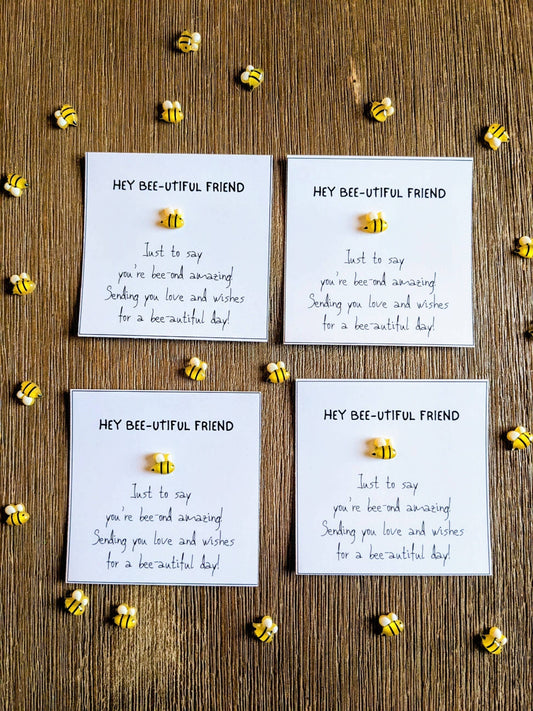 HEY BEE-UTIFUL FRIEND
Just to say
you're bee-ond amazing!
Sending you love and wishes
for a bee-autiful day!
HEY BEE-UTIFUL FRIEND
Just to say
you're bee-ond amazing!
Sending you love and wishes
for a bee-autiful day!
HEY BEE-UTIFUL FRIEND
Just to say
you're bee-ond amazing!
Sending you love and wishes
for a bee-autiful day!
HEY BEE-UTIFUL FRIEND
Just to say
you're bee-ond amazing!
Sending you love and wishes
for a bee-autiful day!